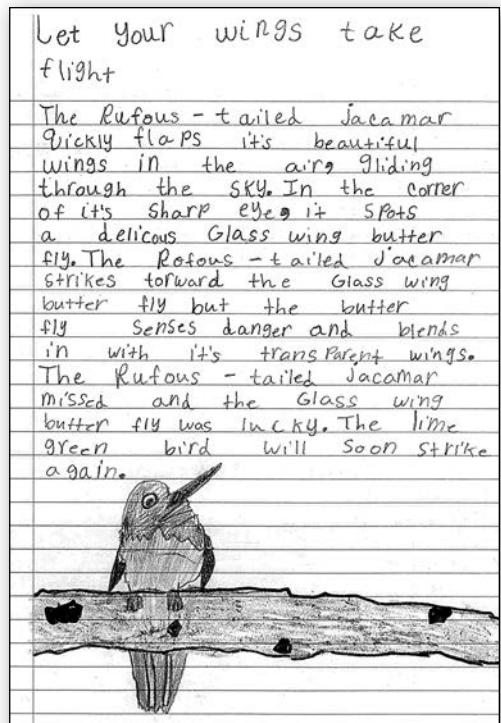 Let your wings take
flight
The Rufous - tailed jacamar
Quickly flaps it's beautiful
wings in the air, gliding
through the sky. In the corner
of it's sharp eye, it spots
a delicous Glass wing butter
fly. The Rofous - tailed Jacamar
strikes torward the Glass wing
butter fly but the butter
fly senses danger and blends
in with it's transparent wings.
The Rufous - tailed Jacamar
missed and the Glass wing
butter fly was lucky. The lime
green bird will soon strike
again.